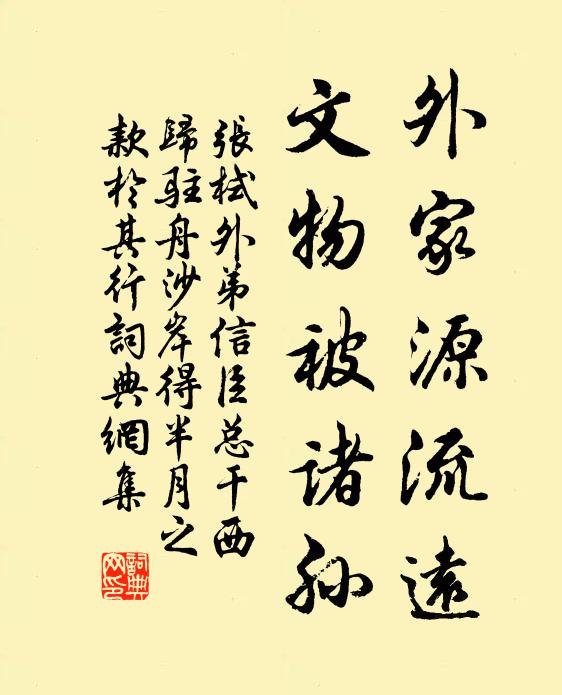 外家源流遠
文物被诸孙
張栻外弟信臣总干西
歸駐舟沙岸得半月之
款於其行詞典網集
詞典
网印